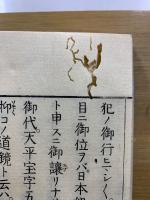 犯ノ御行ニマシ〱
目ニ御位ヲバ日本
ト申スニ御讓リナ
御代天平宝字五
抑コノ道鏡ト云ハ